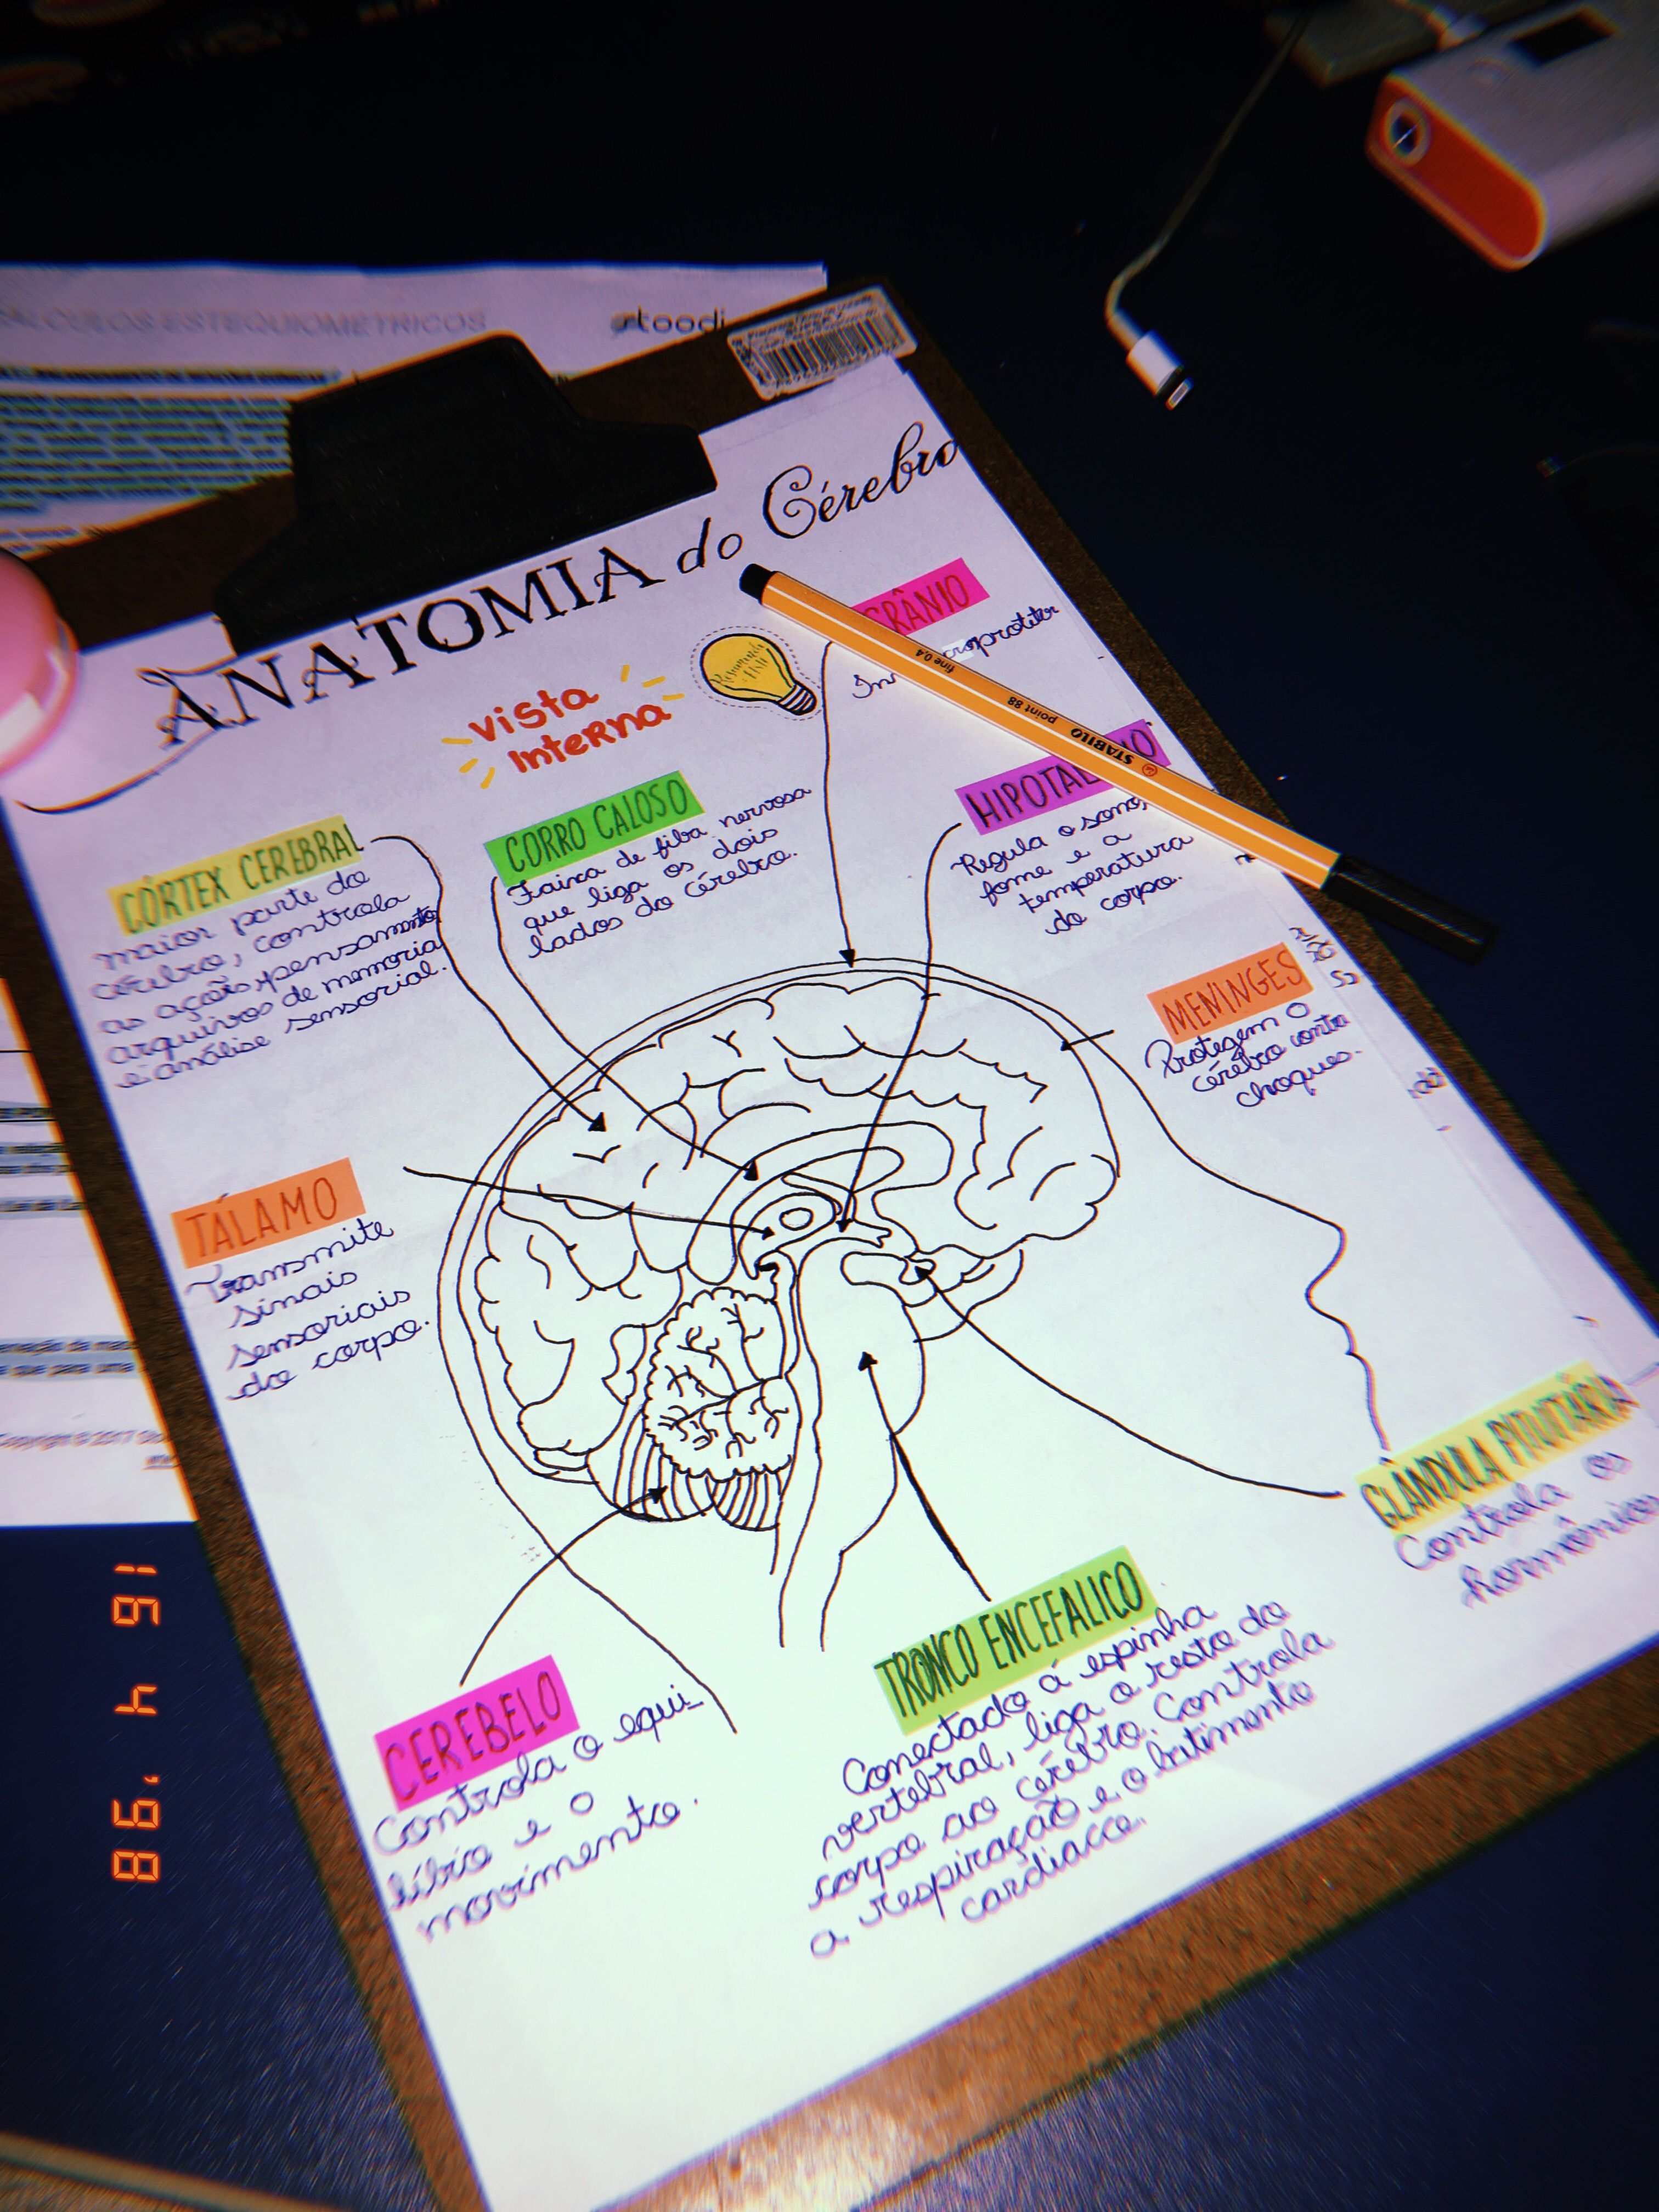 CALCULOS ESTEQUIOMÉTRICOS
stoodi
ANATOMIA do Cérebro
vista
interna
CRÂNIO
STABILO
point 88
fine 0,4
CÓRTEX CEREBRAL
maior parte do
cérebro, controla
as ações, pensamento,
arquivos de memoria
e análise sensorial.
CORRO CALOSO
Faixa de fibra nervosa
que liga os dois
lados do cérebro.
HIPOTAL
Regula o sono,
fome e a
temperatura
do corpo.
MENINGES
Protegem o
cérebro contra
choques.
TÁLAMO
Transmite
sinais
sensoriais
do corpo.
GLÂNDULA PITUITÁRIA
Controla os
hormônios
CEREBELO
Controla o equi-
líbrio e o
movimento.
TRONCO ENCEFALICO
Conectado á espinha
vertebral, liga o resto do
corpo ao cérebro. Controla
a respiração e o batimento
cardiaco.
Copyright © 2017
86. 4 91